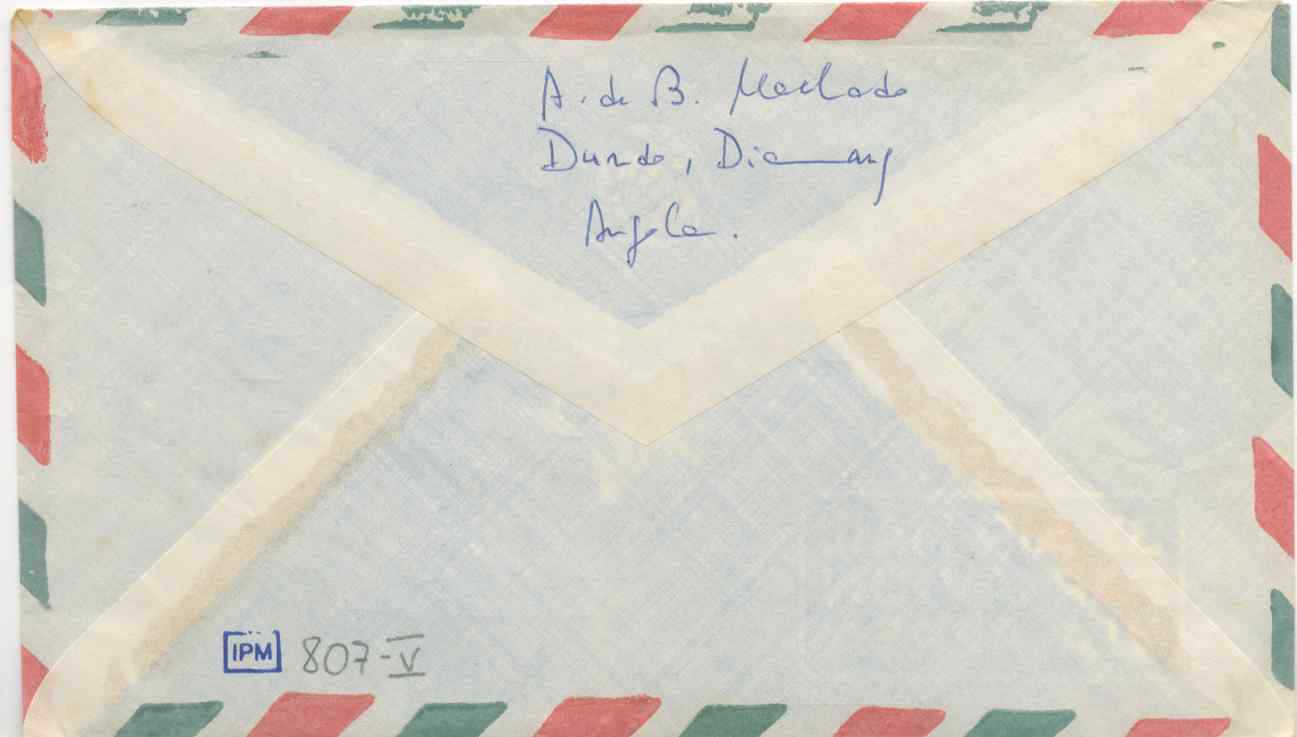 A. de B. Machado
Dundo, Diamang
Angola.
IPM 807-V